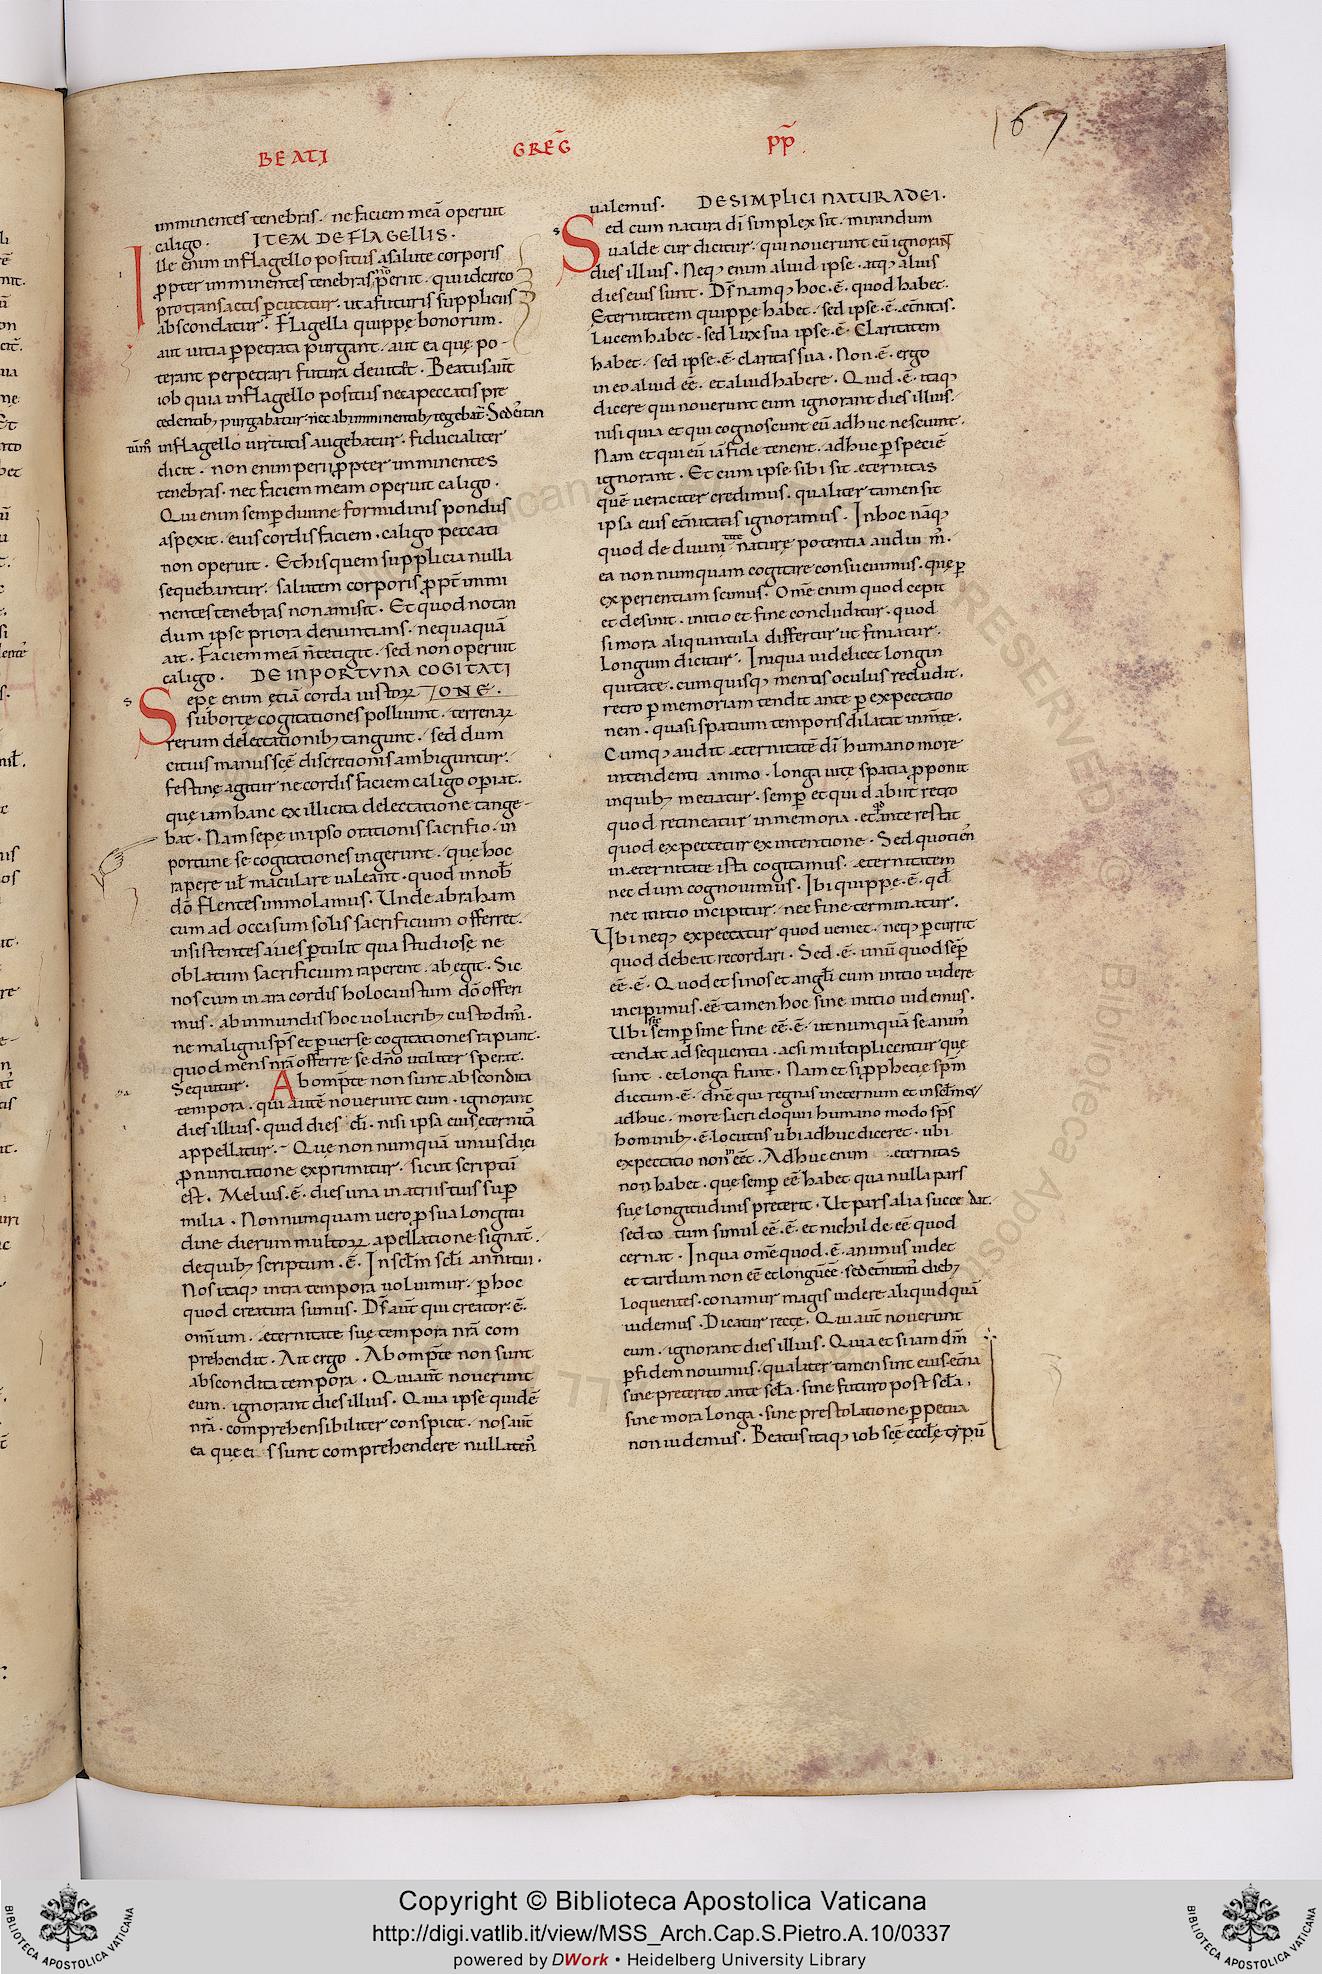 BEATI GREG̃ PP̃
167
imminentes tenebras. ne faciem meã operuit
caligo. ITEM DE FLAGELLIS.
Ille enim in flagello positus a salute corporis
ꝓpter imminentes tenebras perit. qui idcirco
pro transactis ꝑcutitur. ut a futuris suppliciis
abscondatur. Flagella quippe bonorum.
aut uitia ꝑpetrata purgant. aut ea quę po-
terant perpetrari futura deuitãt. Beatus aũt
iob quia in flagello positus nec a peccatis pre
cedentibꝫ purgabatur. nec ab imminentibꝫ tegebat̃. Sed
in flagello uirtutis augebatur. fiducialiter
dicit. non enim perii ꝓpter imminentes
tenebras. nec faciem meam operuit caligo.
Qui enim semꝑ diuine formidinis pondus
aspexit. eius cordis faciem. caligo peccati
non operuit. Et his quem supplicia nulla
sequebantur. salutem corporis ꝓpt̃ immi
nentes tenebras non amisit. Et quod notan
dum ipse priora denuntians. nequaquã
ait. Faciem meã ñ tetigit. sed non operuit
caligo. DE INPORTVNA COGITATI
Sepe enim etiã corda iustoꝝ IONE.
suborte cogitationes polluunt. terrenaꝝ
rerum delectationibꝫ tangunt. sed dum
citius manu sc̃ę discretionis ambiguntur.
festinę agitur ne cordis faciem caligo oꝑiat.
quę iam hanc ex illicita delectatione tange-
bat. Nam sepe in ipso orationis sacrifio. in
portune se cogitationes ingerunt. quę hoc
rapere uł maculare ualeant. quod in nob̃
dõ flentes immolamus. Unde abraham
cum ad occasum solis sacrificium offerret.
insistentes aues ꝑtulit qua studiose ne
oblatum sacrificium raperent. abegit. Sic
nos cum in ara cordis holocaustum dõ offeri
mus. ab inmundis hoc uolucribꝫ custodim̃.
ne maligni sp̃s et ꝑuerse cogitationes rapiant.
quod mens nr̃a offerre se dño utiliter sperat.
Sequitur. Ab omp̃te non sunt abscondita
tempora. qui autẽ nouerunt eum. ignorant
dies illius. quid dies dĩ. nisi ipsa eius eternitã
appellatur. Quę non numquã unius diei
ꝓnuntiatione exprimitur. sicut scriptũ
est. Melius .ẽ. dies una in atriis tuis suꝑ
milia. Non numquam uero ꝓ sua longitu
dine dierum multoꝝ apellatione signat̃.
de quibꝫ scriptum .ẽ. In sc̃lm sc̃li annitui.
Nos itaqꝫ intra tempora uoluimur. ꝑ hoc
quod creatura sumus. Ds̃ aũt qui creator .ẽ.
om̃ium. ęternitate suę tempora nr̃a com
prehendit. Ait ergo. Ab omp̃te non sunt
abscondita tempora. Qui aũt nouerunt
eum. ignorant dies illius. Quia ipse quidẽ
nr̃a. comprehensibiliter conspicit. nos aũt
ea quę ei s sunt comprehendere nullaten̾
ualemus. DE SIMPLICI NATURA DEI.
Sed cum natura dĩ simplex sit. mirandum
ualde cur dicitur. qui nouerunt eũ ignorant
dies illius. Neqꝫ enim aliud ipse. atqꝫ alius
dies eius sunt. Ds̃ namqꝫ hoc .ẽ. quod habet.
Eternitatem quippe habet. sed ipse .ẽ. et̃nitas.
Lucem habet. sed lux sua ipse .ẽ. Claritatem
habet. sed ipse .ẽ. claritas sua. Non .ẽ. ergo
in eo aliud eẽ. et aliud habere. Quid .ẽ. itaqꝫ
dicere qui nouerunt eum ignorant dies illius.
nisi quia et qui cognoscunt eũ adhuc nesciunt.
Nam et qui eũ iã fide tenent. adhuc ꝑ speciẽ
ignorant. Et cum ipse sibi sit ęternitas
quẽ ueraciter credimus. qualiter tamen sit
ipsa eius et̃nitatis ignoramus. In hoc nãqꝫ
quod de diuinitate naturę potentia audiim̃.
ea non numquam cogitare consueuimus. quę ꝑ
experientiam scimus. Om̃e enim quod cepit
et desinit. initio et fine concluditur. quod
si mora aliquantula differtur ut finiatur.
Longum dicitur. In qua uidelicet longin
quitate. cum quisqꝫ mentis oculus recludit.
retro ꝑ memoriam tendit ante ꝑ expectatio
nem. quasi spatium temporis dilatat in mt̃e.
Cumqꝫ audit ęternitatẽ dĩ humano more
intendenti animo. longa uitę spatia ꝓponit
in quibꝫ metiatur. semꝑ et quid abiit retro
quod retineatur in memoria. et quid ante restat
quod expectetur ex intentione. Sed quotien̾
in ęternitate ista cogitamus. ęternitatem
nec dum cognouimus. Ibi quippe .ẽ. qđ
nec initio incipitur. nec fine terminatur.
Ubi neqꝫ expectatur quod ueniet. neqꝫ ꝑcurrit
quod debeat recordari. Sed .ẽ. unũ quod sẽꝑ
eẽ .ẽ. Quod et si nos et angl̃i cum initio uidere
incipimus. eẽ tamen hoc sine initio uidemus.
Ubi sic semꝑ sine fine eẽ .ẽ. ut numquã se anim̃
tendat ad sequentia. ac si multiplicentur quę
sunt. et longa fiant. Nam et si ꝓphetię sp̃m
dictum .ẽ. dñe qui regnas in eternum et in sc̃lm
adhuc. more sacri eloquii humano modo sp̃s
hominibꝫ .ẽ. locutus ubi adhuc diceret. ubi
expectatio non eẽt. Adhuc enim ęternitas
non habet. quę semꝑ eẽ habet qua nulla pars
suę longitudinis preterit. Ut pars alia succedat.
sed to tum simul eẽ .ẽ. et nichil deeẽ quod
cernat. In qua om̃e quod .ẽ. animus uidet
et tardum non eẽ et longũ eẽ. sed et̃nitatẽ diebꝫ
Loquentes. conamur magis uidere aliquid quã
uidemus. Dicatur recte. Qui aũt nouerunt
eum. ignorant dies illius. Quia et si iam dm̃
ꝑ fidem nouimus. qualiter tamen sint eius et̃na
sine preterito ante sc̃la. sine futuro post sc̃la.
sine mora longa. sine prestolatione ꝑpetua
non uidemus. Beatus itaqꝫ iob sc̃ę eccl̃ę typũ
Copyright © Biblioteca Apostolica Vaticana
http://digi.vatlib.it/view/MSS_Arch.Cap.S.Pietro.A.10/0337
powered by DWork • Heidelberg University Library
BIBLIOTECA APOSTOLICA VATICANA
BIBLIOTECA APOSTOLICA VATICANA